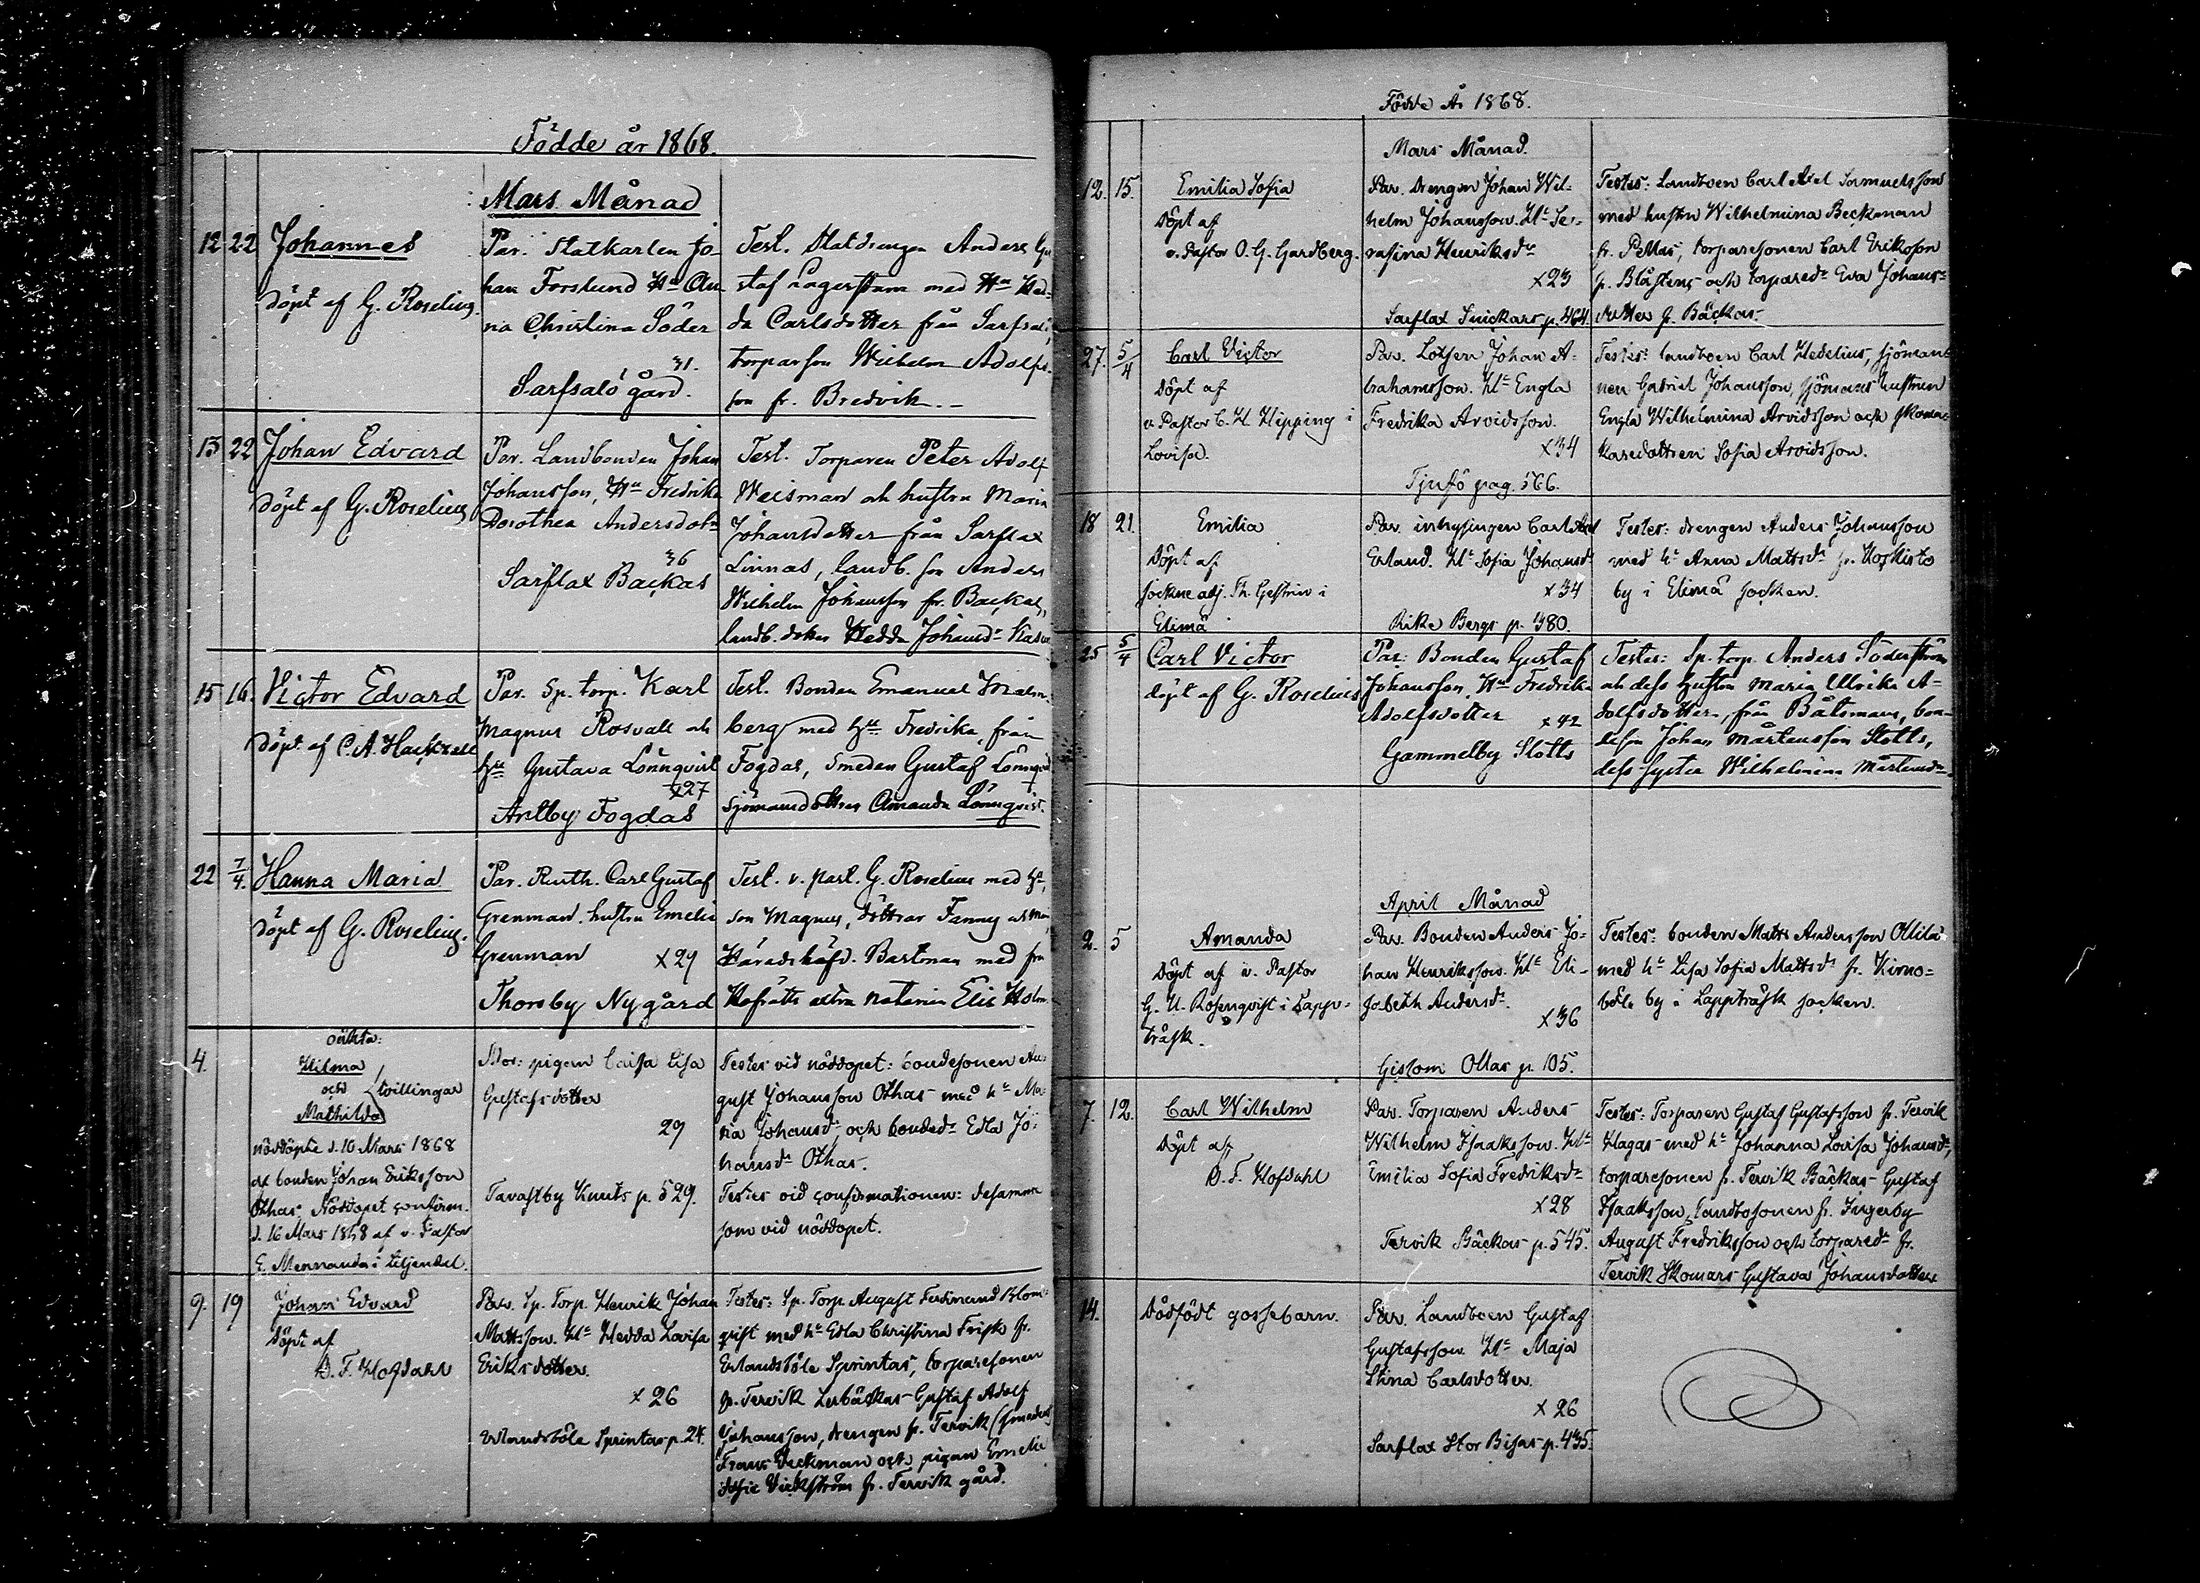 Födde år 1868.
Mars Månad
12 22 Johannes
döpt af G. Roselius.
Par. Statkarlen Jo-
han Forslund Hu An-
na Christina Söder
31.
Sarfsalö gård.
Test. Statdrengen Anders Gu
staf Lagerstam med Hu Hed-
da Carlsdotter från Sarfsalö,
torparson Wilhelm Adolfs-
son fr. Bredvik.
13 22 Johan Edvard
döpt af G. Roselius
Par. Landbonden Johan
Johansson, Hu Fredrika
Dorothea Andersdotr
36
Sarflax Backas
Test. Torparen Peter Adolf
Weisman och hustru Maria
Johansdotter från Sarflax
Linnas, landb. son Anders
Wilhelm Johansson fr. Backas,
landb. doter Hedda Johansdr
15 16. Victor Edvard
döpt af C. A. Hackzell
Par. Sp. torp. Karl
Magnus Rosvall och
hu Gustava Lönnqvist
x27
Antby Fogdas
Test. Bonden Emanuel Malm-
berg med hu Fredrika, från
Fogdas, Smeden Gustaf Lönnqvist
sjömansdottren Amanda Lönnqvist.
22 7/4. Hanna Maria
döpt af G. Roselius.
Par. Rusth. Carl Gustaf
Grenman. hustru Emelie
Grenman x29
Thorsby Nygård
Test. v. past. G. Roselius med hu,
son Magnus, döttrar Fanny och
Häradshöfd. Bastman med fru
Hofrätts extra notarien Elis
4.
oäkta:
Hilma
och tvillingar
Mathilda
nöddöpte d. 10 Mars 1868
af bonden Johan Eriksson
Othas. Nöddopet confirm.
d. 16 Mars 1868 af v. Pastor
E. Mennander i Liljendal.
Mor: pigan Caisa Lisa
Gustafsdotter
29
Tavastby Knuts p. 529.
Testes vid nöddopet: bondesonen Au-
gust Johansson Othas med hu Ma-
ria Johansdr och bondedr Edla Jo-
hansdr Othas.
Testes vid confirmationen: desamme
som vid nöddopet.
9. 19 Johan Edvard
Döpt af
D. F. Hofdahl
Par. Sp. Torp. Henrik Johan
Mattsson. Hu Hedda Lovisa
Eriksdotter.
x 26
Erlandsböle Sprintas p. 24.
Testes: Sp. Torp August Ferdinand Blom-
qvist med hu Edla Christina Frisk fr.
Erlandsböle Sprintas, torparesonen
fr. Tervik Lerbäckas Gustaf Adolf
Johansson, drengen fr. Tervik (smeden)
Frans Vickman och pigan Emelie
Sofie Vickström fr. Tervik gård.
Födde År 1868.
Mars Månad.
12. 15. Emilia Sofia
Döpt af
v. Pastor O. G. Gardberg.
Par. Drengen Johan Wil-
helm Johansson. Hu Se-
rafina Henriksdr
x23
Sarflax Snickars p. 464.
Testes: Landboen Carl Axel Samuelsson
med hustru Wilhelmina Beckman
fr. Pellas, torparesonen Carl Eriksson
fr. Blåstens och torparedr Eva Johans-
dotter fr. Bäckas.
27. 5/4 Carl Victor
Döpt af
v. Pastor C. H. Hipping i
Lovisa.
Par. Lotsen Johan A-
brahamsson. Hu Engla
Fredrika Arvidsson.
x34
Tjufö pag. 566.
Testes: landboen Carl Hedelius, sjöman-
nen Gabriel Johansson, sjömans hustrun
Engla Wilhelmina Arvidsson och skoma-
karedottren Sofia Arvidsson.
18 21. Emilia
Döpt af
sockne adj. Th. Gestrin i
Elimä
Par. inhysingen Carl Axel
Erland. Hu Sofia Johansdr
x34
Rike Bergs p. 380.
Testes: drengen Anders Johansson
med hu Anna Mattsdr fr. Koskisto
by i Elimä socken.
25 5/4 Carl Victor
döpt af G. Roselius
Par: Bonden Gustaf
Johansson. Hu Fredrika
Adolfsdotter x 42
Gammelby Slotts
Testes: Sp. torp. Anders Söderström
och dess hustru Maria Ulrika A-
dolfsdotter, från Båtsmans, bon-
deson Johan Mårtensson Slotts,
dess syster Wilhelmina Mårtensdr
April Månad
2. 5 Amanda
Döpt af v. Pastor
G. U. Rosenqvist i Lapp-
träsk.
Par. Bonden Anders Jo-
han Henriksson. Hu Eli-
sabeth Andersdr
x36
Gislom Ollas p. 105.
Testes: bonden Matts Andersson Ollila
med hu Lisa Sofia Mattsdr fr. Kimo-
böle by i Lappträsk socken.
7. 12. Carl Wilhelm
Döpt af
D. F. Hofdahl
Par. Torparen Anders
Wilhelm Isaksson. Hu
Emilia Sofia Fredriksdr
x28
Tervik Bäckas p. 545.
Testes: Torparen Gustaf Gustafsson fr. Tervik
Hagas med hu Johanna Lovisa Johansdr,
torparesonen fr. Tervik Bäckas Gustaf
Isaksson, landbosonen fr. Ingerby
August Fredriksson och torparedr fr.
Tervik Skomars Gustava Johansdotter
14. Dödfödt gossebarn.
Par. Landboen Gustaf
Gustafsson. Hu Maja
Stina Carlsdotter.
x 26
Sarflax Stor Bisas p. 435.